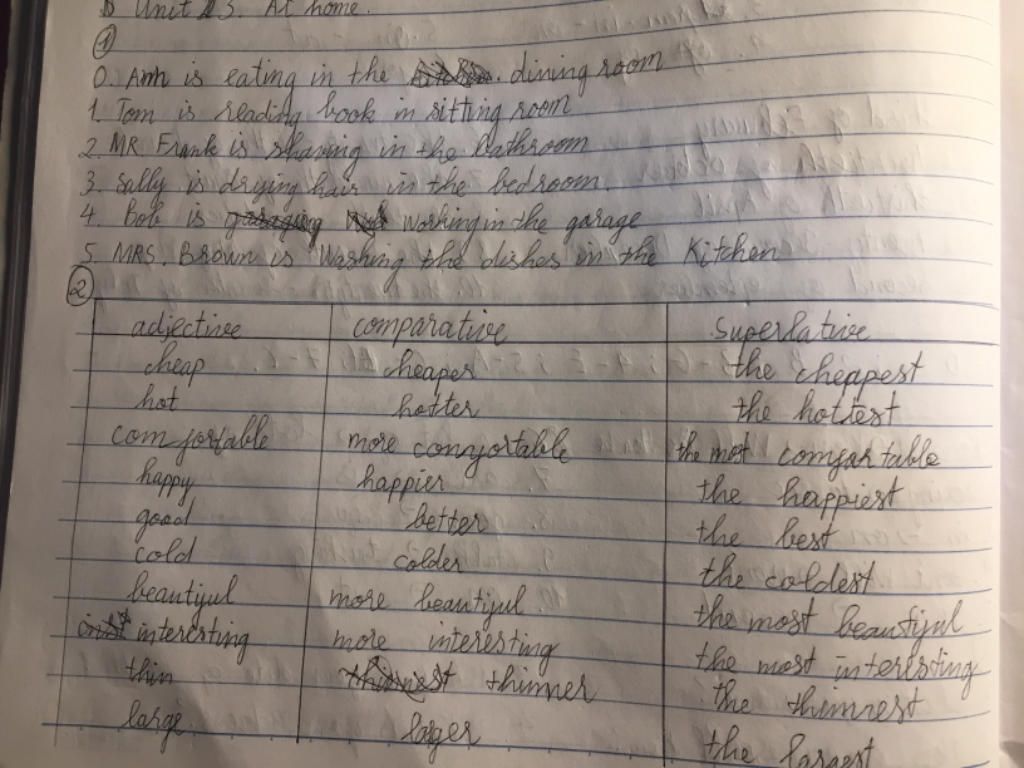 Unit 3. At home.
①
0. Anh is eating in the dining room
1. Tom is reading book in sitting room
2. MR Frank is shaving in the bathroom
3. Sally is drying hair in the bedroom.
4. Bob is working in the garage
5. MRS. Brown is Washing the dishes in the Kitchen
②
adjective comparative superlative
cheap cheaper the cheapest
hot hotter the hottest
comfortable more comfortable the most comfortable
happy happier the happiest
good better the best
cold colder the coldest
beautiful more beautiful the most beautiful
interesting more interesting the most interesting
thin thinner the thinnest
large larger the largest